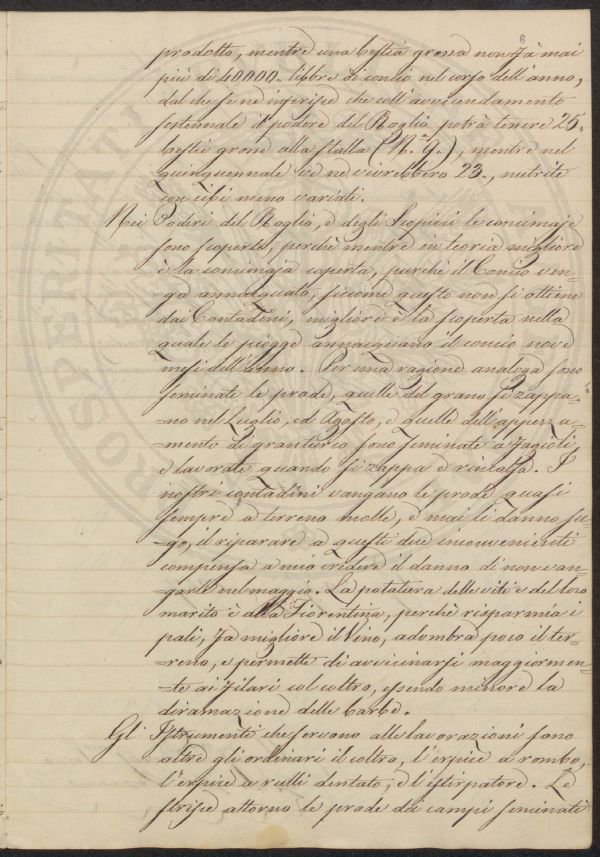 6
prodotto, mentre una bestia grossa non fà mai
più di 40000. libbre di concio nel corso dell'anno,
dal che se ne inferisce che coll'avvicendamento
sestennale il podere del Roglio potrà tenere 25.
bestie grosse alla stalla (N.° 9.), mentre nel
quinquennale ve ne vivrebbero 23., nutrite
con cibi meno variati.
Nei Poderi del Roglio, e degli Scopicci le concimaje
sono scoperte, perchè mentre in teoria migliore
è la concimaja coperta, purchè il Concio ven=
ga annacquato, siccome questo non si ottiene
dai Contadini, migliore è la scoperta nella
quale le piogge annacquano il concio nove
mesi dell'Anno. Per una ragione analoga sono
seminate le prode, quelle del grano si zappa=
=no nel Luglio, ed Agosto, e quelle dell'appezza=
=mento di granturco sono seminate a fagioli
e lavorate quando si zappa e rincalza. I
nostri contadini vangano le prode quasi
sempre a terreno molle, e mai li danno su=
=go, il riparare a questi due inconvenienti
compensa a mio credere il danno di non van=
=garle nel maggio. La potatura delle viti e del loro
marito è alla Fiorentina, perchè risparmia i
pali, fa migliore il Vino, adombra poco il ter=
=reno, e permette di avvicinarsi maggiormen=
=te ai filari col coltro, essendo minore la
diramazione delle barbe.
Gl'Istrumenti che servono alle lavorazioni sono
oltre gli ordinari il coltro, l'erpice a rombo,
l'erpice a rulli dentato, e l'estirpatore. Le
strisce attorno le prode dei campi seminati
PROSPERITATI